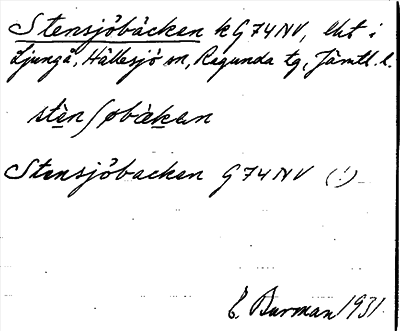 Stensjöbäcken k G74NV, ekt i
Ljungå, Hällesjö sn, Ragunda tg, Jämtl. l.
stènʃøbàkan
Stensjöbäcken G74NV (!)
E. Burman 1931.